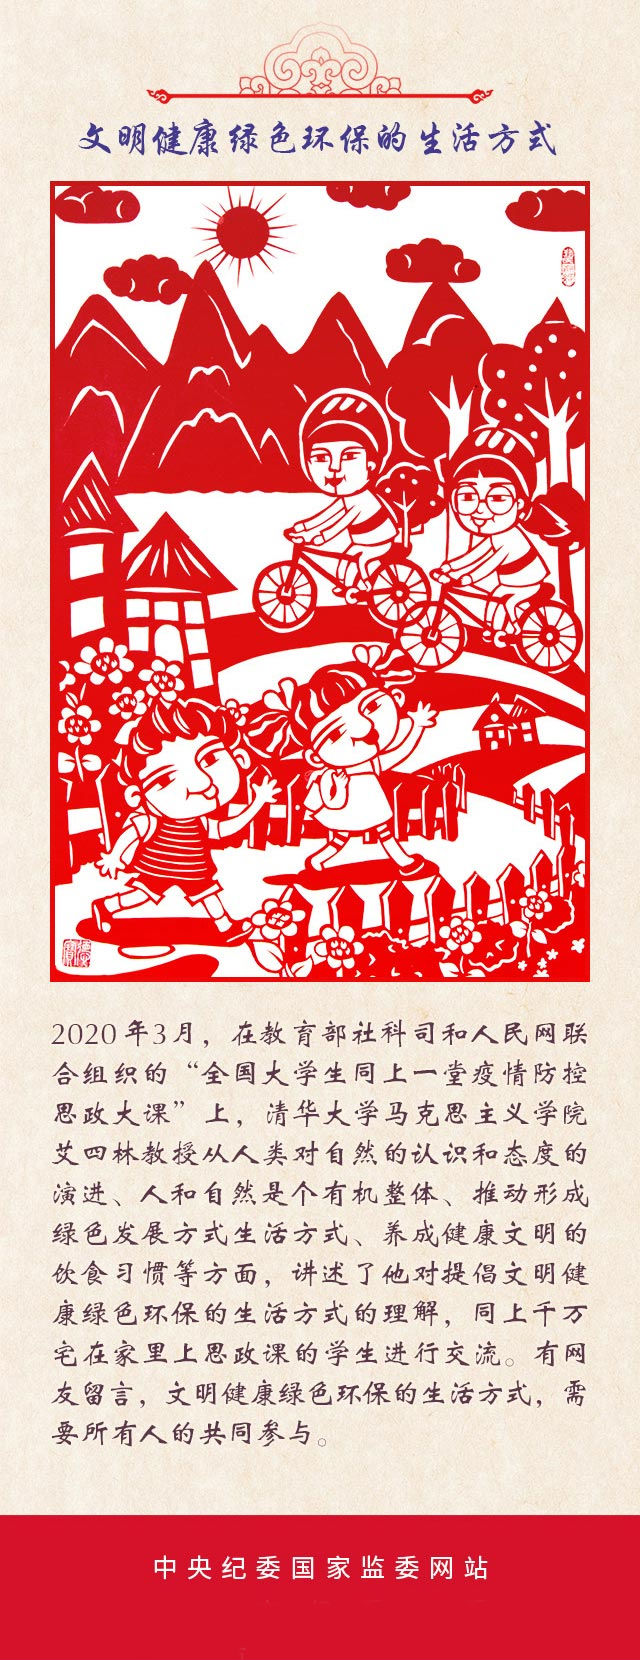 文明健康绿色环保的生活方式
2020年3月，在教育部社科司和人民网联
合组织的“全国大学生同上一堂疫情防控
思政大课”上，清华大学马克思主义学院
艾四林教授从人类对自然的认识和态度的
演进、人和自然是个有机整体、推动形成
绿色发展方式生活方式、养成健康文明的
饮食习惯等方面，讲述了他对提倡文明健
康绿色环保的生活方式的理解，同上千万
宅在家里上思政课的学生进行交流。有网
友留言，文明健康绿色环保的生活方式，需
要所有人的共同参与。
中央纪委国家监委网站